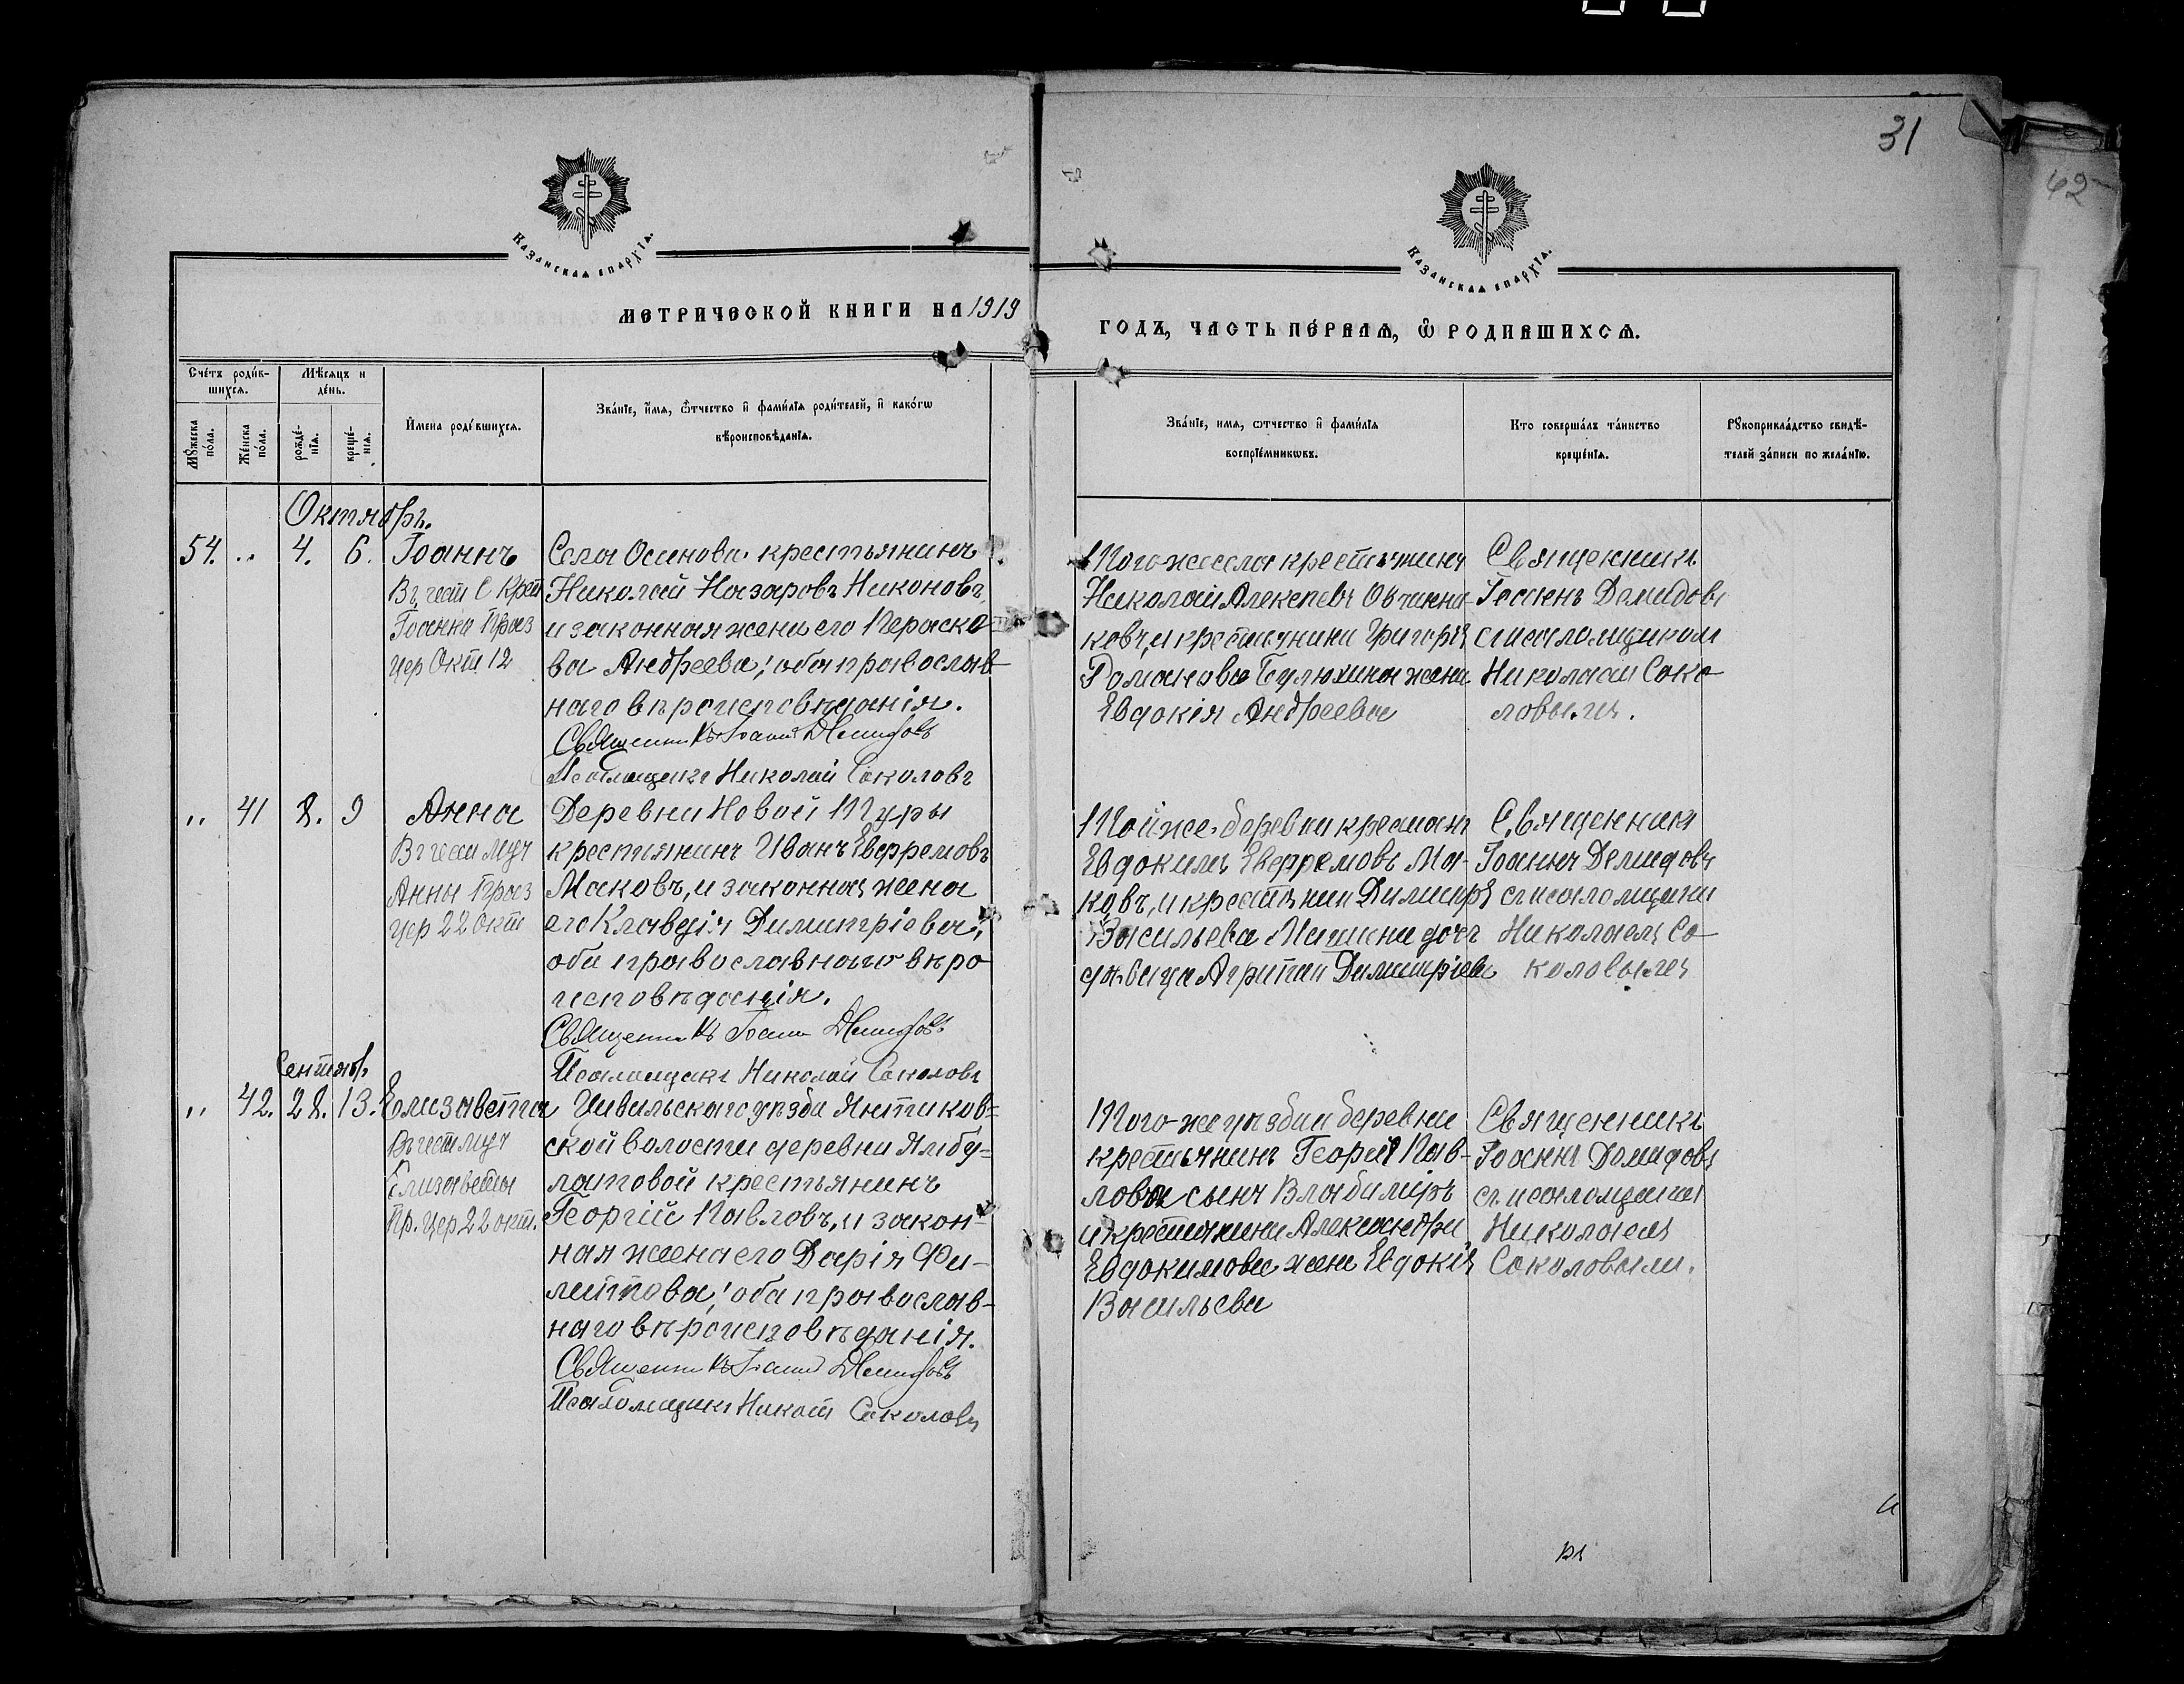 31
62
Казанская епархїѧ.
Казанская епархїѧ.
МЕТРИЧЕСКОЙ КНИГИ НА 1919
ГОДЪ, ЧАСТЬ ПЕ́РВАЯ, Ѽ РОДИВШИХСѦ.
Сче́тъ роди́в-
шихсѧ.
Мѣ́сѧцъ и
де́нь.
Мꙋ́жеска
по́ла.
Же́нска
по́ла.
рожде́-
нїѧ.
креще́-
нїѧ.
И҆мена роди́вшихсѧ.
Зва́нїе, и҆́мѧ, ѻ҆́тчество и҆ фами́лїѧ роди́телей, и҆ како́гѡ
вѣроисповѣ́данїѧ.
Зва́нїе, имѧ, ѻтчество и҆ фами́лїѧ
воспрїе́мникѡвъ.
Кто соверша́лъ та́инство
креще́нїѧ.
Рꙋкоприкла́дство свидѣ́-
телей за́писи по жела́нїю.
Октябрь.
54. „ 4. 6. Іоаннъ
Въ чест С Крест
Іоанна Праз
цер Окт 12
Села Осинова крестьянинъ
Николай Назаровъ Никоновъ,
и законная жена его Параске-
ва Андреева; оба православ-
наго вѣроисповѣданія.
Священникъ Іоаннъ Демидовъ
Псаломщикъ Николай Соколовъ
Того-же села крестьянинъ
Николай Алексѣевъ Овчинни-
ковъ, и крестьянина Григорія
Романова Булюхина жена
Евдокія Андреева
Священникъ
Іоаннъ Демидовъ
с псаломщиком
Николаем Соко-
ловымъ.
„ 41 8. 9 Анна
Въ чест муч
Анны Праз
цер 22 окт
Деревни Новой Туры
крестьянинъ Иванъ Евфремовъ
Маковъ, и законная жена
его Клавдія Димитріева;
оба православнаго вѣро-
исповѣданія.
Священникъ Іоаннъ Демидовъ
Псаломщикъ Николай Соколовъ
Той-же деревни крестьян
Евдокимъ Евфремовъ Ма-
ковъ, и крестьянин Димитрія
Васильева Мишина дочь
дѣвица Агрипин Димитріева
Священникъ
Іоаннъ Демидовъ
съ псаломщики
Николаемъ Со-
коловымъ
Сентябр.
„ 42. 28. 13. Елизавета
Въ чест муч
Елизаветы
Пр. цер 22 окт.
Цивильскаго уѣзда Янтиков=
ской волости деревни Ямбу=
латовой крестьянинъ
Георгій Павловъ, и закон=
ная жена его Дарія Фи-
липпова; оба православ-
наго вѣроисповѣданія.
Священникъ Іоаннъ Демидовъ
Псаломщикъ Никол Соколовъ
Того-же уѣзда и деревни
крестьянинъ Георгія Пав-
лова сынъ Владиміръ
и крестьянина Александра
Евдокимова жена Евдокія
Васильева
Священникъ
Іоаннъ Демидовъ
съ псаломщикомъ
Николаемъ
Соколовымъ.